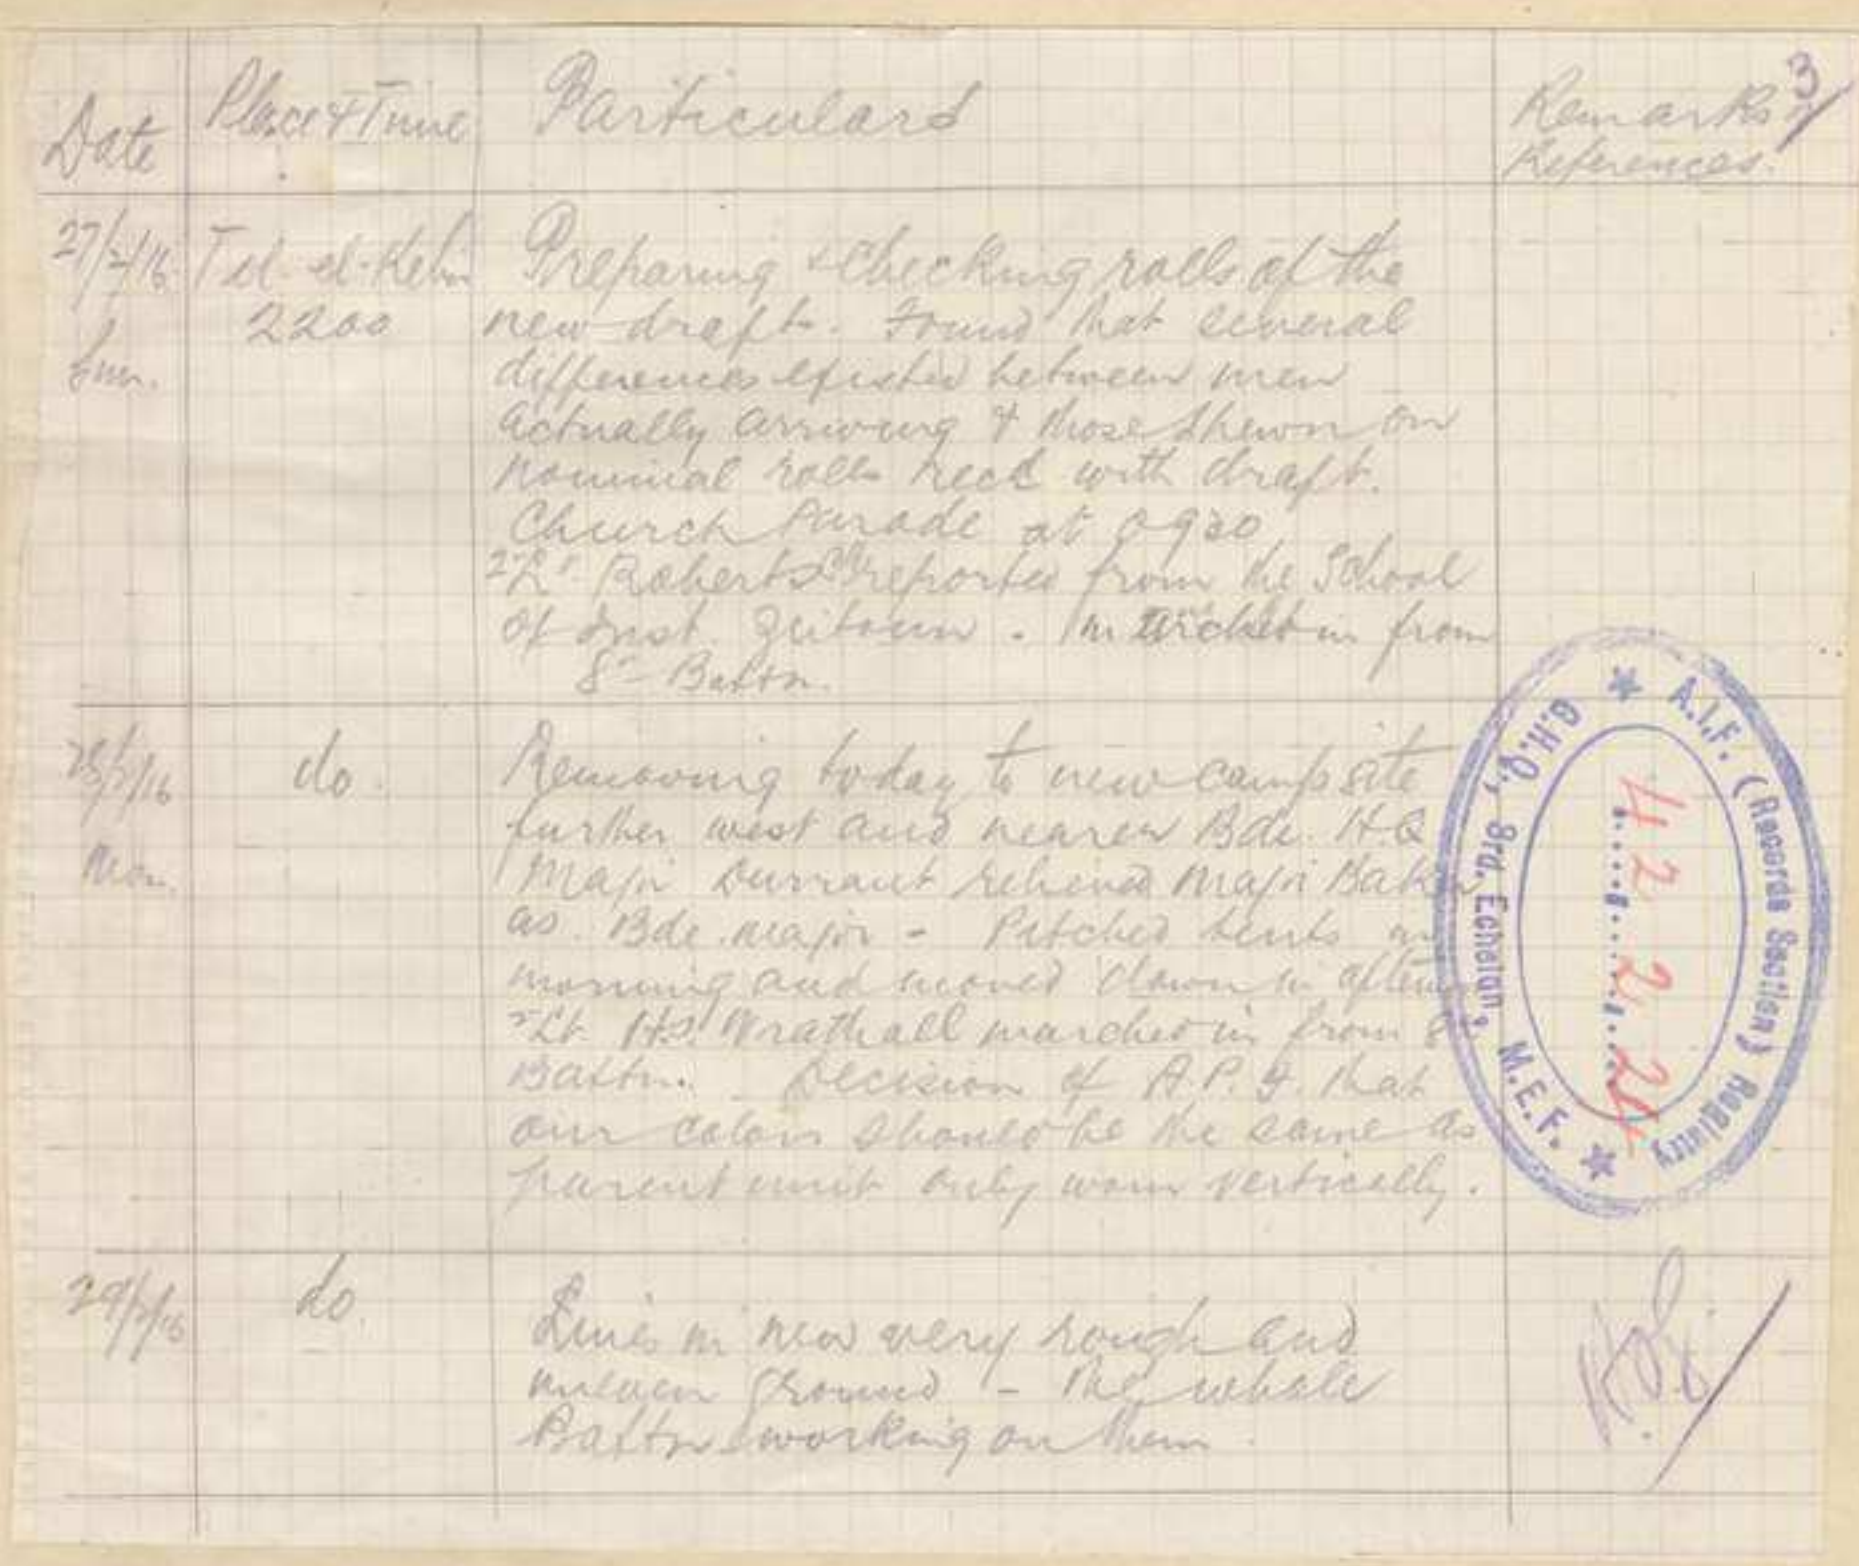 3/
Date Place & Time Particulars Remarks &
References.
27/2/16 Tel-el-Kebir Preparing & checking rolls of the
2200 new draft. Found that several
Sun. differences existed between men
actually arriving & those shewn on
nominal rolls recd with draft.
Church Parade at 0930
2nd Lt Roberts reported from the School
of Inst. Zeitoun. Marched in from
8th Battn.
28/2/16 do. Removing today to new camp site
further west and nearer Bde. H.Q
Mon. Major Durrant relieved Major Baker
as Bde. Major - Pitched tents in
morning and moved down in aftern
2nd Lt. H.S. Wrathall marched in from 8th
Battn. Decision of A.P. & that
our colors should be the same as
parent unit only worn vertically.
29/2/16 do. Lines in new very rough and
uneven ground - The whole
Battn working on them.
A.I.F. (Records Section) Registry
G.H.Q., 3rd. Echelon, M.E.F.